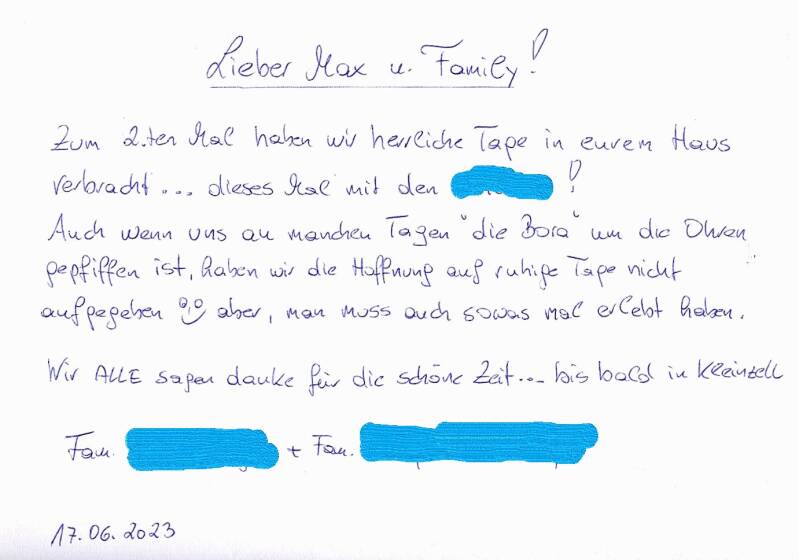 Lieber Max u. Family!
Zum 2.ten Mal haben wir herrliche Tage in eurem Haus
verbracht... dieses Mal mit den !
Auch wenn uns an manchen Tagen "die Bora" um die Ohren
gepfiffen ist, haben wir die Hoffnung auf ruhige Tage nicht
aufgegeben aber, man muss auch sowas mal erlebt haben.
Wir ALLE sagen danke für die schöne Zeit... bis bald in Kleinzell
Fam. + Fam.
17.06.2023